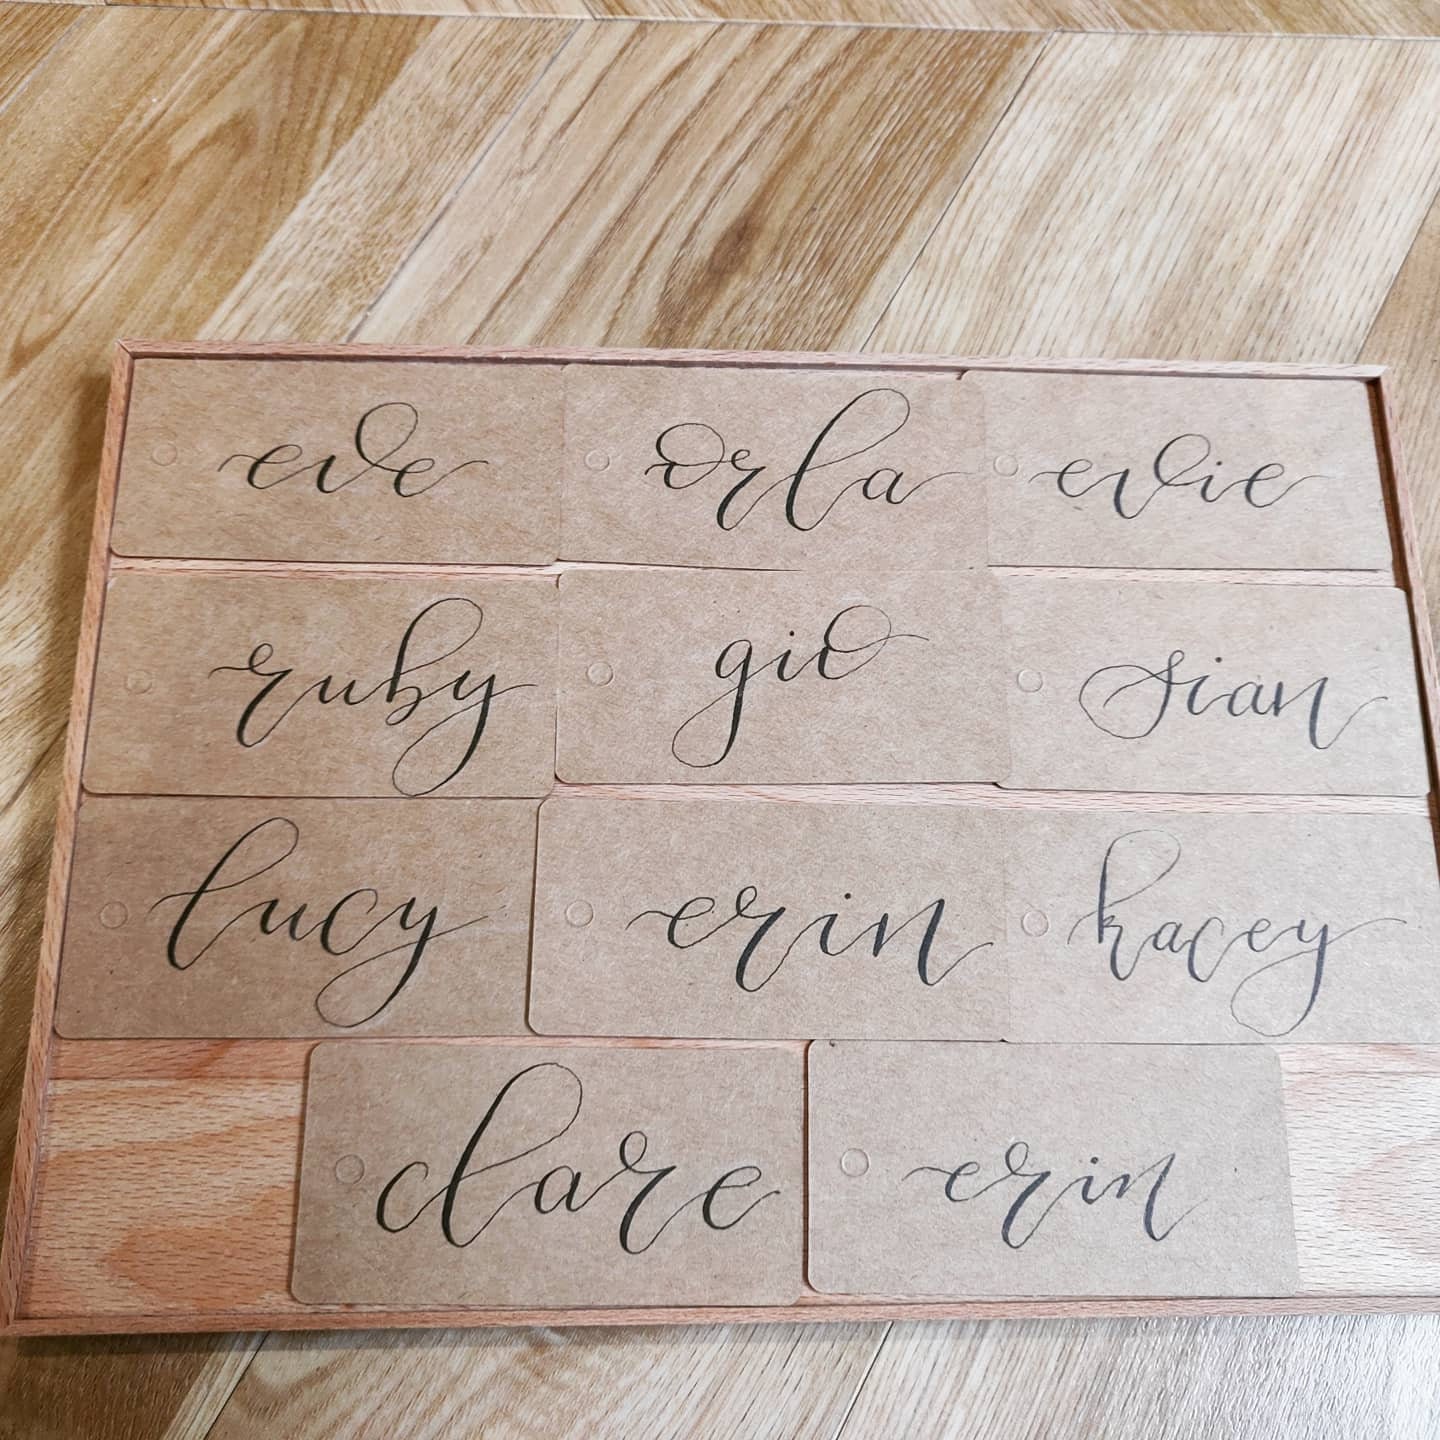 eve
orla
evie
ruby
gio
sian
lucy
erin
kacey
clare
erin